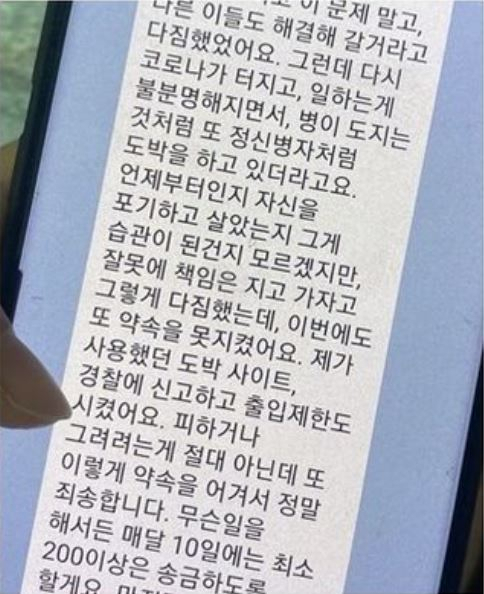 이 문제 말고,
다른 이들도 해결해 갈거라고
다짐했었어요. 그런데 다시
코로나가 터지고, 일하는게
불분명해지면서, 병이 도지는
것처럼 또 정신병자처럼
도박을 하고 있더라고요.
언제부터인지 자신을
포기하고 살았는지 그게
습관이 된건지 모르겠지만,
잘못에 책임은 지고 가자고
그렇게 다짐했는데, 이번에도
또 약속을 못지켰어요. 제가
사용했던 도박 사이트,
경찰에 신고하고 출입제한도
시켰어요. 피하거나
그려려는게 절대 아닌데 또
이렇게 약속을 어겨서 정말
죄송합니다. 무슨일을
해서든 매달 10일에는 최소
200이상은 송금하도록
할게요.